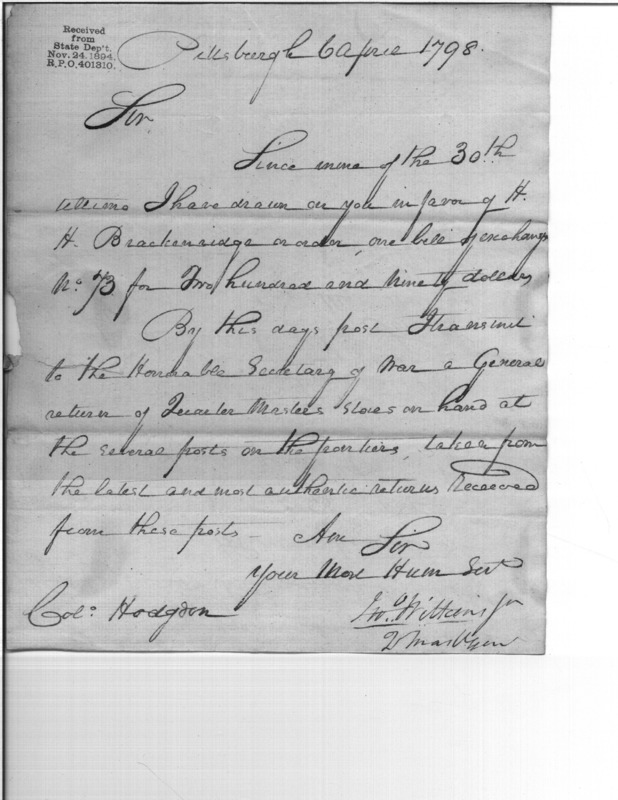 Received
from
State Dep't.
Nov. 24. 1894.
R.P.O. 401310.
Pittsburgh 6 April 1798.
Sir
Since mine of the 30th
ultimo I have drawn on you in favor of H.
H. Brackenridge or order, one bill of exchange
No. 73 for Two hundred and Ninety dollars
By this days post I transmit
to the Honorable Secretary of War a General
return of Quarter Masters stores on hand at
the several posts on the frontiers, taken from
the latest and most authentic returns Received
from these posts - Am Sir
Your Most Hum Servt
Colo. Hodgdon
Jno. Wilkins Jr
Q Mas Gen